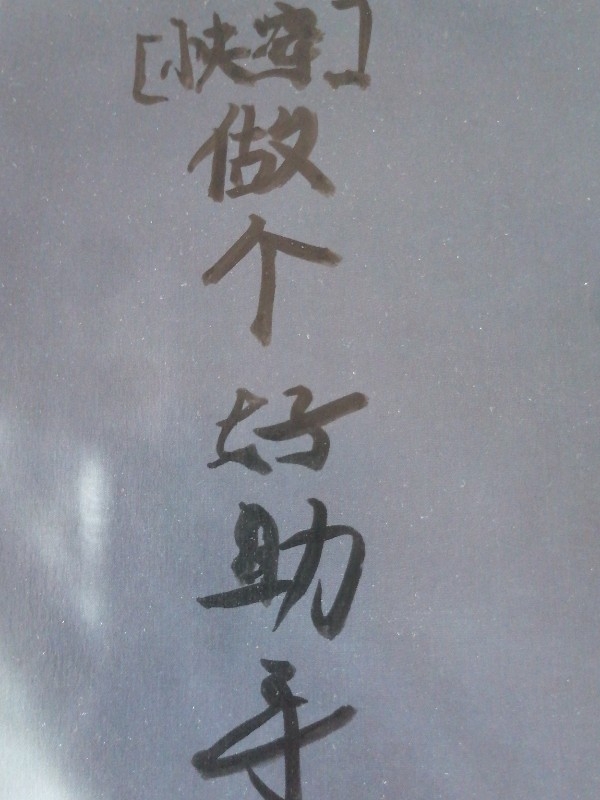 [快客]
做个好助手